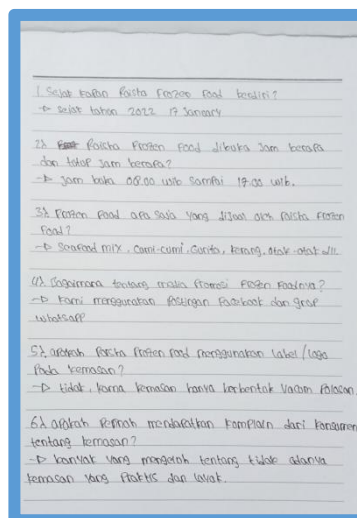 1. Sejak kapan Raisha Frozen Food berdiri?
-> sejak tahun 2022 17 January
2. Raisha Frozen Food dibuka jam berapa
dan tutup jam berapa?
-> jam buka 08.00 wib sampai 17.00 wib.
3. Frozen Food apa saja yang dijual oleh Raisha Frozen
Food?
-> Seafood mix, Cumi-cumi, Gurita, kerang, otak-otak dll
4. Bagaimana tentang media Promosi Frozen Foodnya?
-> Kami menggunakan Postingan Facebook dan grup
whatsapp
5. apakah Raisha Frozen Food menggunakan label/logo
Pada kemasan?
-> tidak, karna kemasan hanya berbentuk Vacum Polosan
6. apakah Pernah mendapatkan Komplain dari konsumen
tentang kemasan?
-> banyak yang mengeluh tentang tidak adanya
kemasan yang Praktis dan layak.